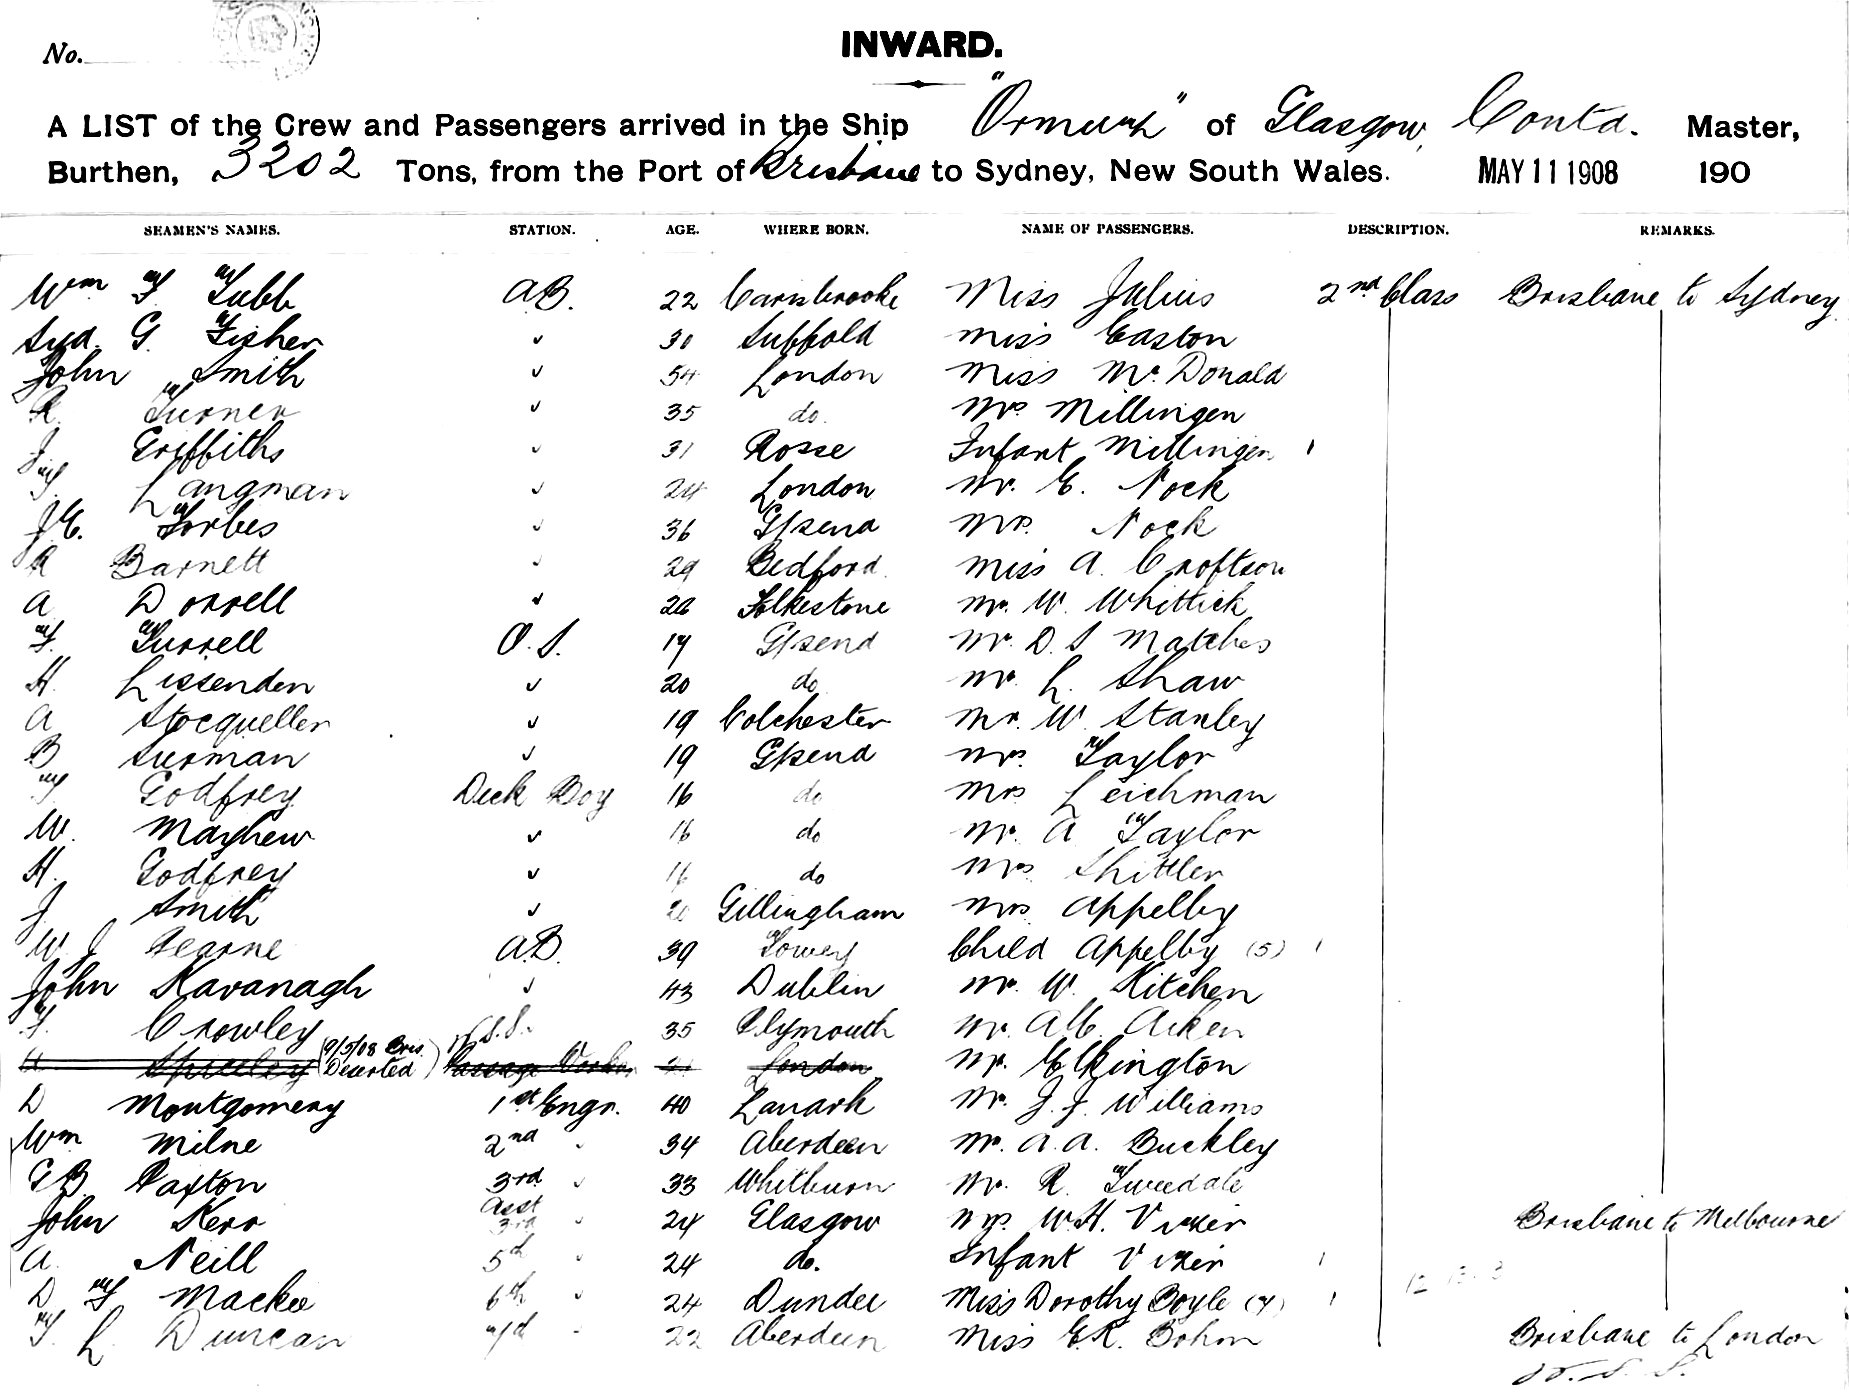 No.
INWARD.
A LIST of the Crew and Passengers arrived in the Ship "Ormuz" of Glasgow, Contd. Master,
Burthen, 3202 Tons, from the Port of Brisbane to Sydney, New South Wales. MAY 11 1908 190
SEAMEN'S NAMES. STATION. AGE. WHERE BORN. NAME OF PASSENGERS. DESCRIPTION. REMARKS.
Wm F Tubb A.B. 22 Carisbrooke Miss Julius 2nd Class Brisbane to Sydney
Syd. G. Fisher 30 Suffold Miss Easton
John Smith 54 London Miss McDonald
R Turner 35 do. Mrs Millingen
J Griffiths 31 Rosse Infant Millingen 1
Langman 24 London Mr. E. Nock
J.E. Forbes 36 G/send Mrs. Nock
R Barnett 29 Bedford. Miss A. Croftson
A Dorrell 26 Folkestone Mr. W. Whittick
F. Turrell O.S. 19 G/send Mr. D. S Matches
H. Lissenden 20 do Mr. L. Shaw
A Stocqueller 19 Colchester Mr. W. Stanley
B Surman 19 G/send Mrs. Taylor
T Godfrey Deck Boy 16 do Mrs Leichman
W. Mayhew 16 do Mr. A Taylor
H. Godfrey 16 do Mrs. Shittler
J Smith 20 Gillingham Mrs Appelby
W. J Fearne A.B. 39 Fowey Child Appelby (5) 1
John Kavanagh 43 Dublin Mr. W. Kitchen
F. Crowley 35 Plymouth Mr. Aiken
9/5/08 Bris. Deserted Passage Worker London Mr. Elkington
D Montgomery 1st Engr. 40 Lanark Mr. J. J. Williams
Wm Milne 2nd " 34 Aberdeen Mr. A.A. Buckley
G B Paxton 3rd 33 Whitburn Mr. R. Tweedale
John Kerr Asst 3rd 24 Glasgow Mrs. W.H. Vizer Brisbane to Melbourne
A. Neill 5th 24 do. Infant Vizer 1
D F Mackie 6th 24 Dundee Miss Dorothy Boyle (7) 1
T L Duncan 22 Aberdeen Miss E.R. Bohm Brisbane to London